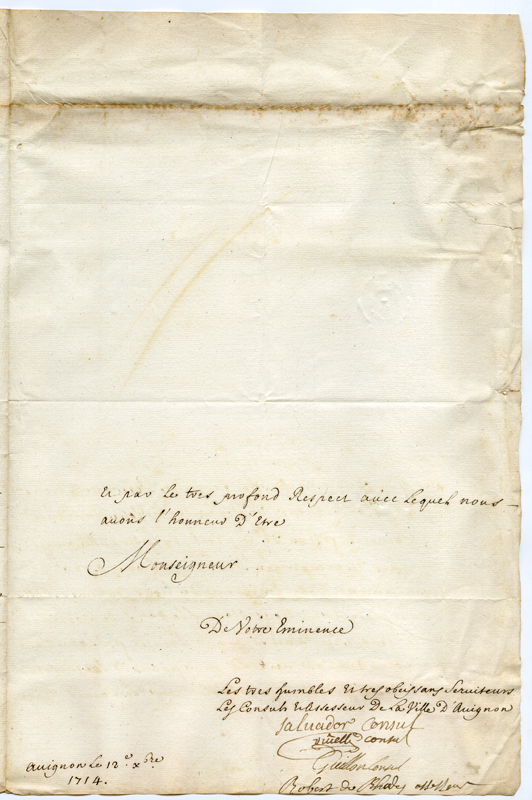 Et par Le tres profond Respect avec Lequel nous
avons l'honneur D'Etre
Monseigneur
De Votre Eminence
Les tres humbles et tres obeissans Serviteurs
Les Consuls et Assesseur De La Ville D'Avignon
Salvador Consul
Consul
Robert de
Avignon Le 12e xbre
1714.